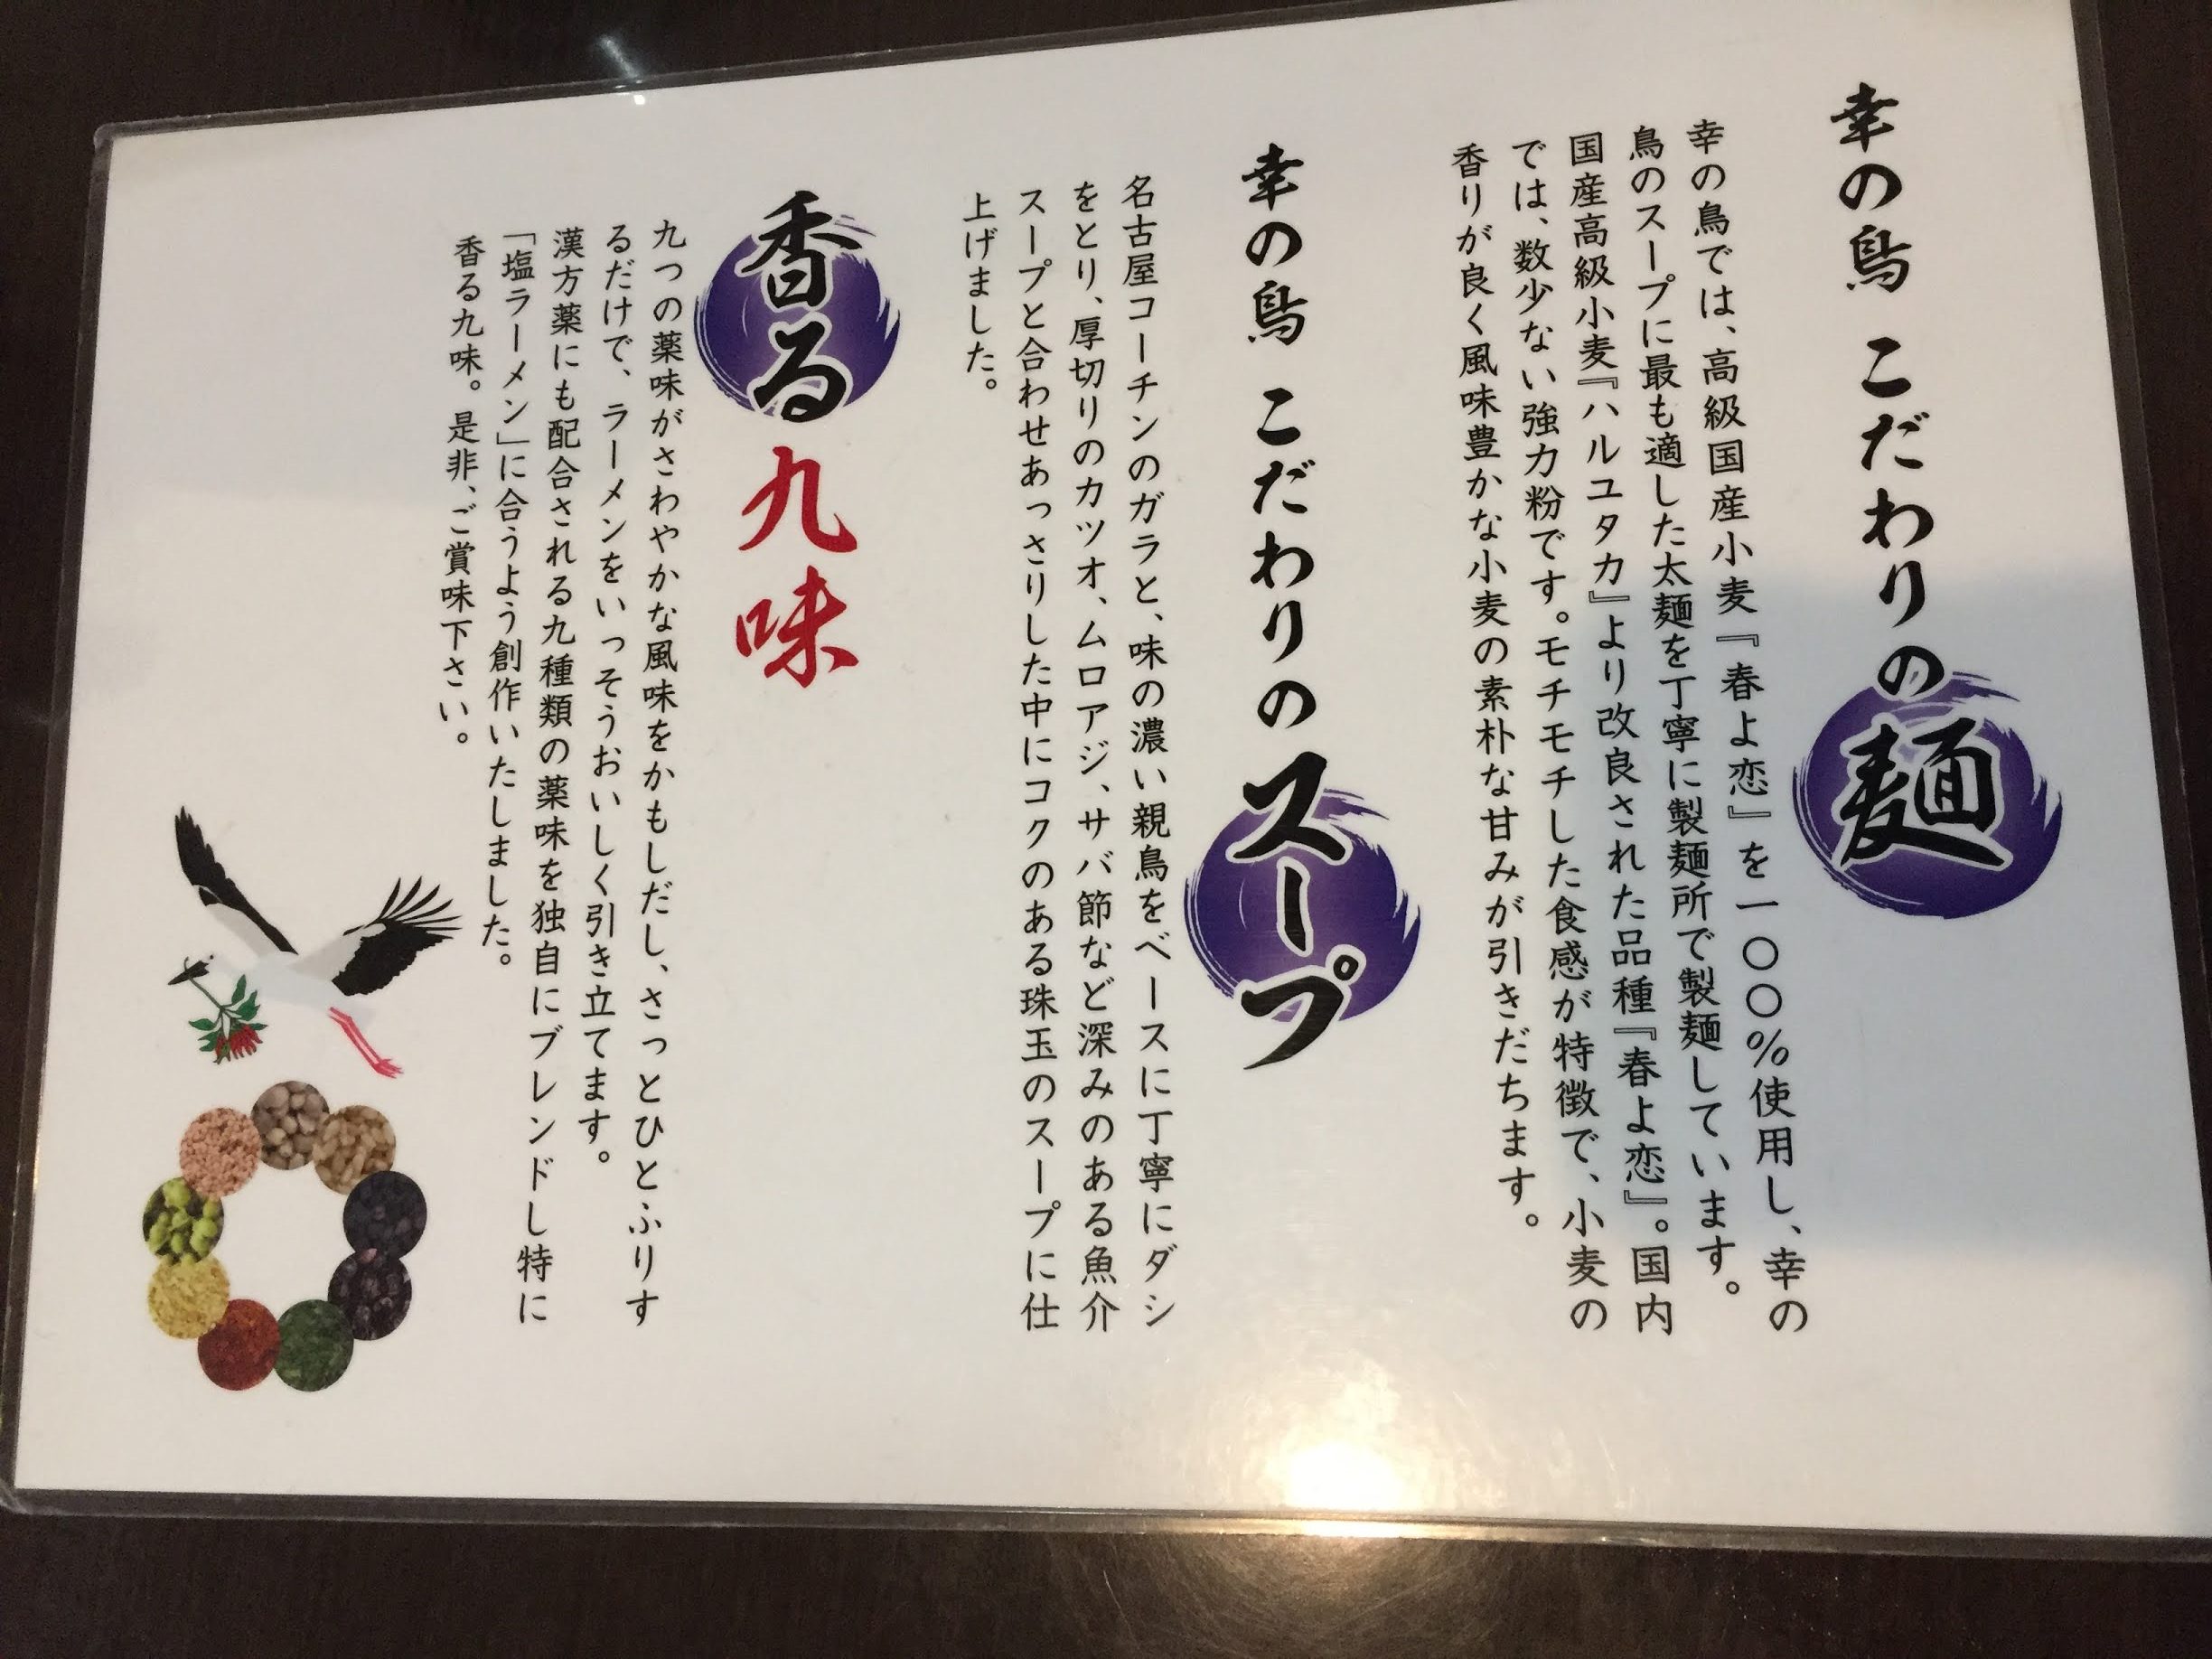 幸の鳥 こだわりの麺
幸の鳥では、高級国産小麦『春よ恋』を一〇〇%使用し、幸の
鳥のスープに最も適した太麺を丁寧に製麺所で製麺しています。
国産高級小麦『ハルユタカ』より改良された品種『春よ恋』。国内
では、数少ない強力粉です。モチモチした食感が特徴で、小麦の
香りが良く風味豊かな小麦の素朴な甘みが引きだちます。
幸の鳥 こだわりのスープ
名古屋コーチンのガラと、味の濃い親鳥をベースに丁寧にダシ
をとり、厚切りのカツオ、ムロアジ、サバ節など深みのある魚介
スープと合わせあっさりした中にコクのある珠玉のスープに仕
上げました。
香る九味
九つの薬味がさわやかな風味をかもしだし、さっとひとふりす
るだけで、ラーメンをいっそうおいしく引き立てます。
漢方薬にも配合される九種類の薬味を独自にブレンドし特に
「塩ラーメン」に合うよう創作いたしました。
香る九味。是非、ご賞味下さい。